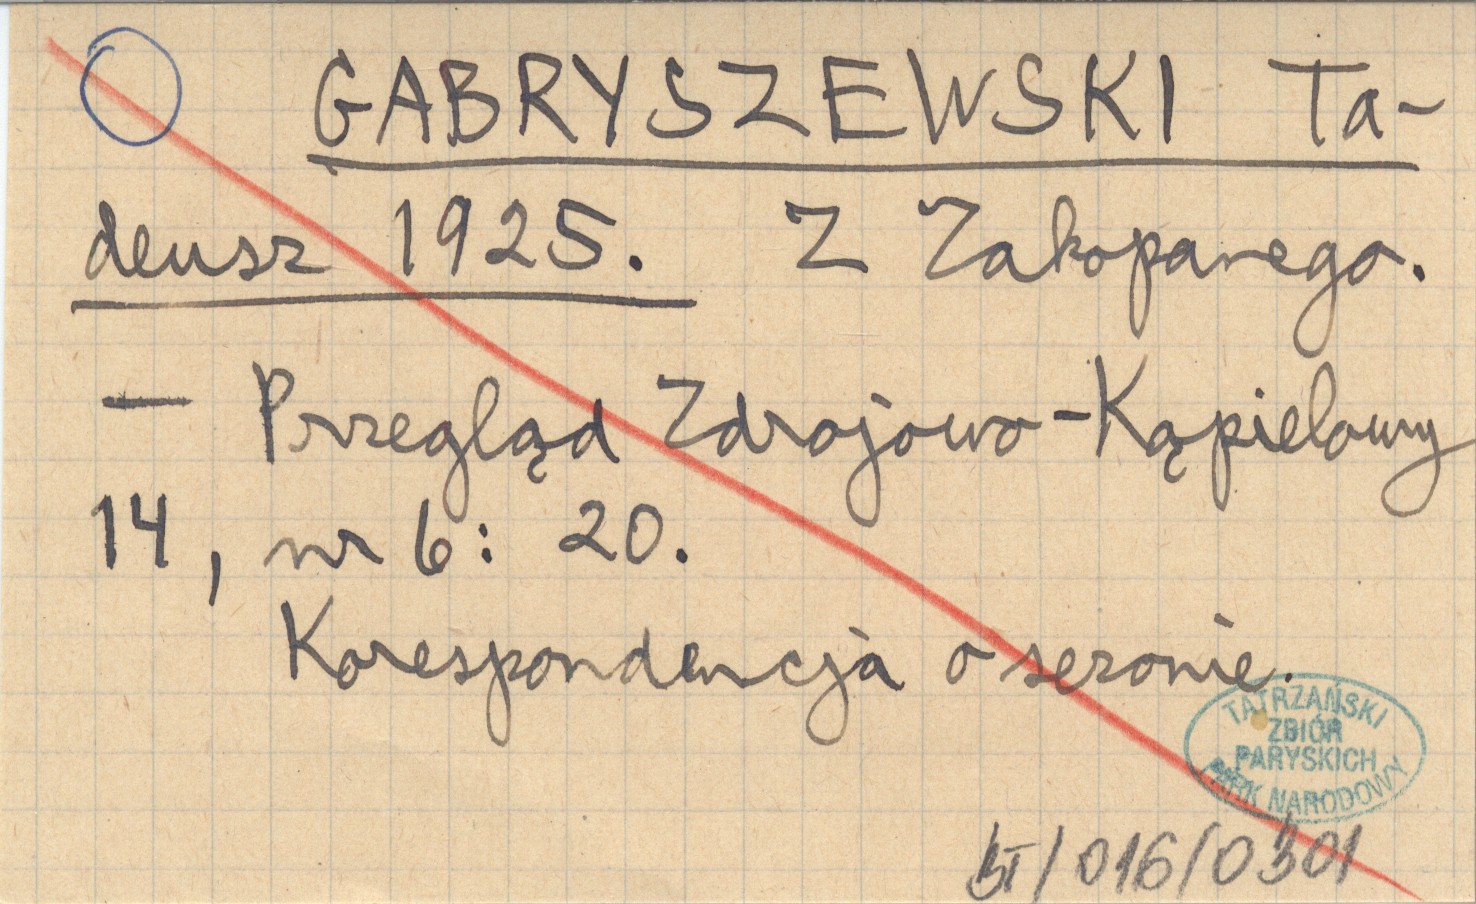 GABRYSZEWSKI Ta-
deusz 1925. Z Zakopanego.
— Przegląd Zdrojowo-Kąpielowy
14, nr 6: 20.
Korespondencja o sezonie.
TATRZAŃSKI
ZBIÓR
PARYSKICH
PARK NARODOWY
BT/016/0301